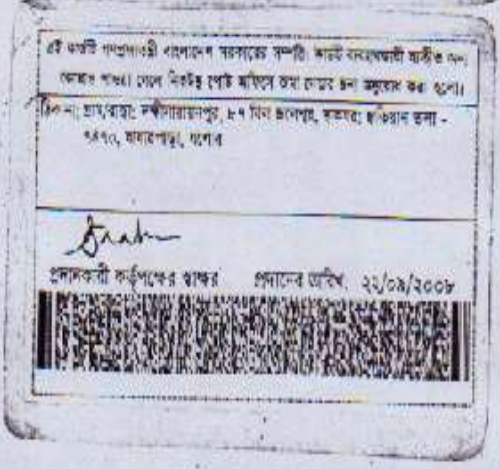 এই কার্ডটি গণপ্রজাতন্ত্রী বাংলাদেশ সরকারের সম্পত্তি। কার্ডটি ব্যবহারকারী ব্যতীত অন্য
কোথাও পাওয়া গেলে নিকটস্থ পোস্ট অফিসে জমা দেবার জন্য অনুরোধ করা হলো।
ঠিকানা: গ্রাম/রাস্তা: লক্ষীনারায়নপুর, ডাকঘর: ছাতিয়ান তলা -
৭৪৭০, বাঘারপাড়া, যশোর
প্রদানকারী কর্তৃপক্ষের স্বাক্ষর প্রদানের তারিখ: ২২/০৯/২০০৮